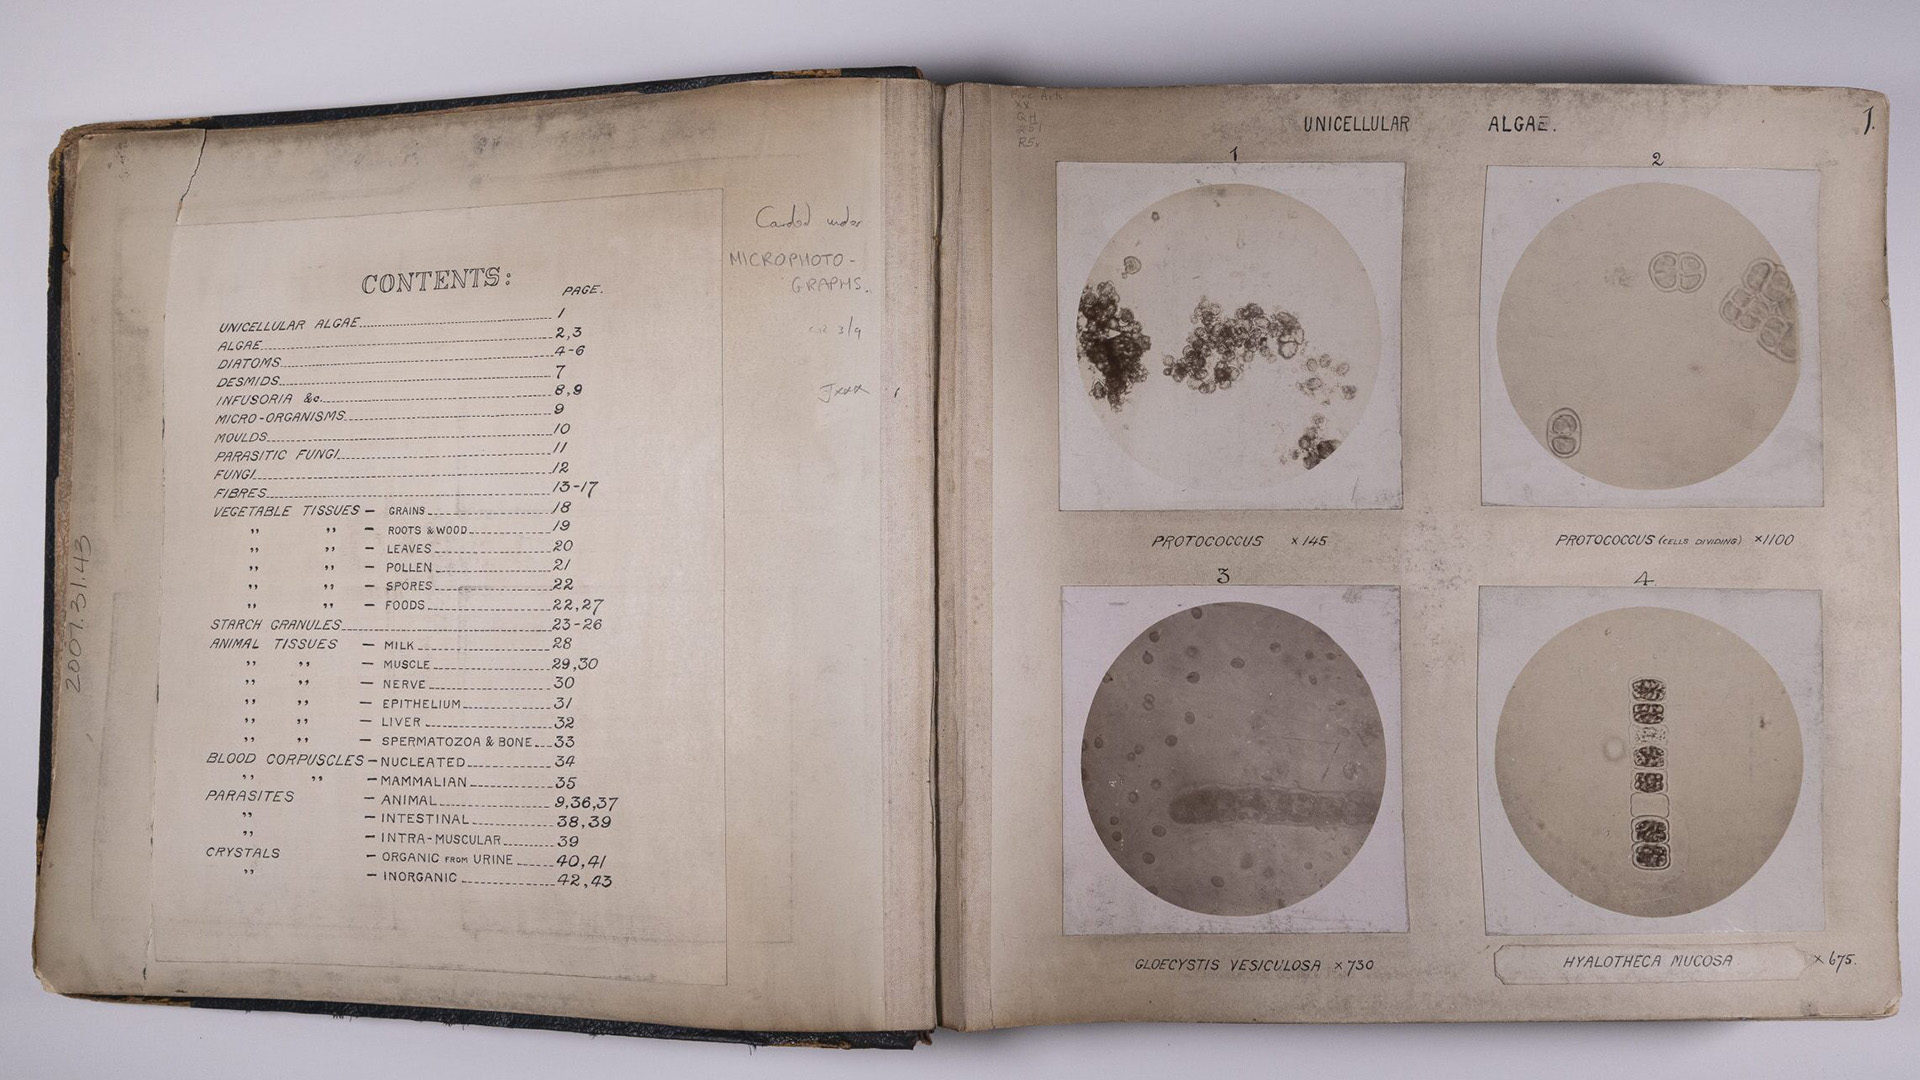 CONTENTS:
PAGE.
UNICELLULAR ALGAE 1
ALGAE 2,3
DIATOMS 4-6
DESMIDS 7
INFUSORIA &c. 8,9
MICRO-ORGANISMS 9
MOULDS 10
PARASITIC FUNGI 11
FUNGI 12
FIBRES 13-17
VEGETABLE TISSUES - GRAINS 18
" " - ROOTS & WOOD 19
" " - LEAVES 20
" " - POLLEN 21
" " - SPORES 22
" " - FOODS 22,27
STARCH GRANULES 23-26
ANIMAL TISSUES - MILK 28
" " - MUSCLE 29,30
" " - NERVE 30
" " - EPITHELIUM 31
" " - LIVER 32
" " - SPERMATOZOA & BONE 33
BLOOD CORPUSCLES - NUCLEATED 34
" " - MAMMALIAN 35
PARASITES - ANIMAL 9,36,37
" - INTESTINAL 38,39
" - INTRA-MUSCULAR 39
CRYSTALS - ORGANIC FROM URINE 40,41
" - INORGANIC 42,43
2007.31.43
Carded under
MICROPHOTO-
GRAPHS.
3/9
UNICELLULAR ALGAE.
1.
1
2
PROTOCOCCUS ×145
PROTOCOCCUS (CELLS DIVIDING) ×1100
3
4
GLOECYSTIS VESICULOSA ×730
HYALOTHECA MUCOSA ×675.